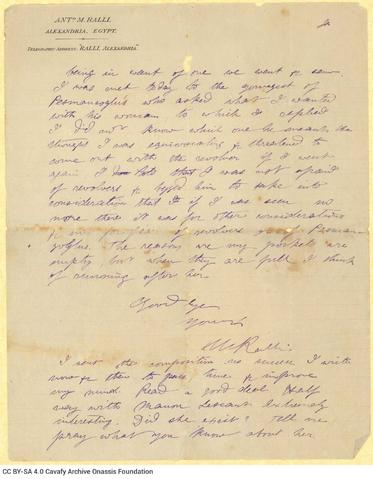 ANTO. M. RALLI.
ALEXANDRIA, EGYPT.
TELEGRAPHIC ADDRESS: "RALLI, ALEXANDRIA"
being in want of one we went &
I was met today to the youngest of
who asked what I wanted
with his woman to which I replied
I did not know which one he meant. He
thought I was equivocating & threatened to
come out with the revolver if I went
again. I that I was not afraid
of revolvers & begged him to take into
consideration that if I was seen no
more there it was for other considerations
& not for fear of revolvers
The reasons are my pockets are
empty but when they are full I think
of running after her.
Good bye
Yours
M Ralli
I sent the composition no success I write
now & then to pass time & improve
my mind. Read a good deal. Half
way with Manon Lescaut extremely
interesting. Did she exist? Tell me
pray what you know about her
CC BY-SA 4.0 Cavafy Archive Onassis Foundation